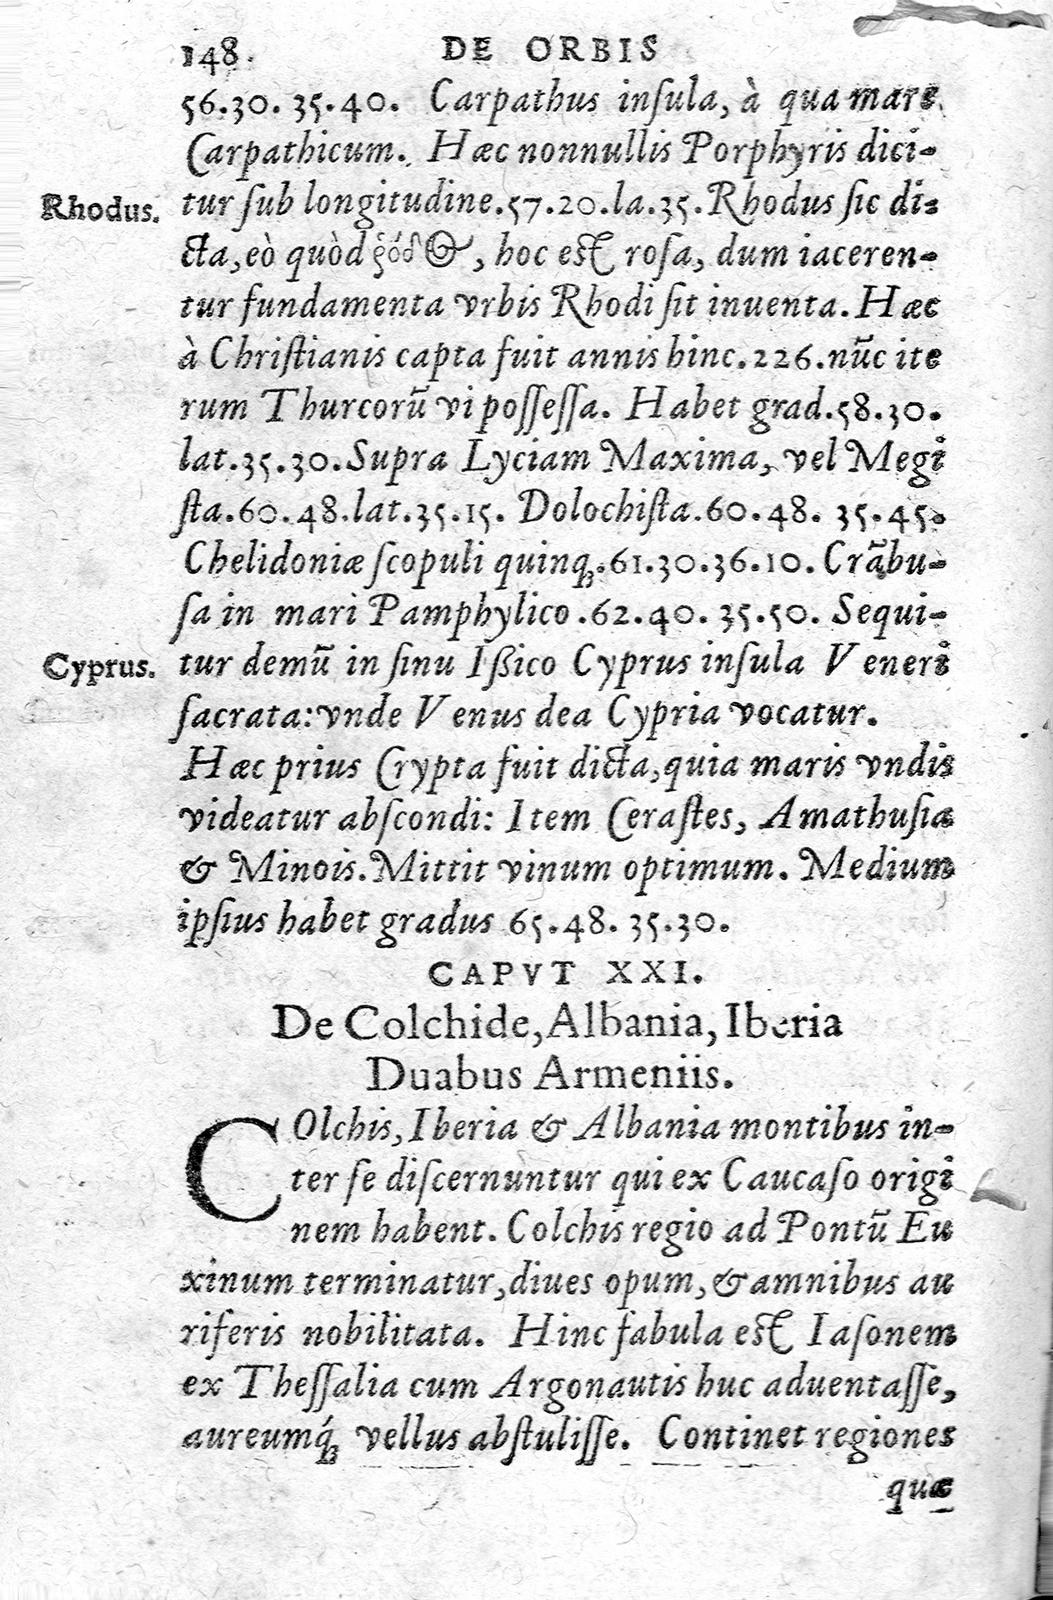 148. DE ORBIS
56.30. 35.40. Carpathus inſula, à qua mare
Carpathicum. Hæc nonnullis Porphyris dici-
Rhodus.
tur ſub longitudine.57.20.la.35.Rhodus ſic di-
cta, eò quòd ῥόδος, hoc est roſa, dum iaceren-
tur fundamenta vrbis Rhodi ſit inuenta. Hæc
à Chriſtianis capta fuit annis hinc.226.nūc ite
rum Thurcorū vi poſſeſſa. Habet grad.58.30.
lat.35.30.Supra Lyciam Maxima, vel Megi
ſta.60.48.lat.35.15. Dolochiſta.60.48. 35.45.
Chelidoniæ ſcopuli quinq;.61.30.36.10. Crābu-
ſa in mari Pamphylico.62.40. 35.50. Sequi-
Cyprus.
tur demū in ſinu Iſsico Cyprus inſula Veneri
ſacrata:vnde Venus dea Cypria vocatur.
Hæc prius Crypta fuit dicta,quia maris vndis
videatur abſcondi: Item Ceraſtes, Amathuſia
& Minois.Mittit vinum optimum. Medium
ipſius habet gradus 65.48. 35.30.
CAPVT XXI.
De Colchide,Albania, Iberia
Duabus Armeniis.
COlchis, Iberia & Albania montibus in-
ter ſe diſcernuntur qui ex Caucaſo origi
nem habent. Colchis regio ad Pontū Eu
xinum terminatur,diues opum,& amnibus au
riferis nobilitata. Hinc fabula est Iaſonem
ex Theſſalia cum Argonautis huc aduentaſſe,
aureumq́; vellus abſtuliſſe. Continet regiones
quæ